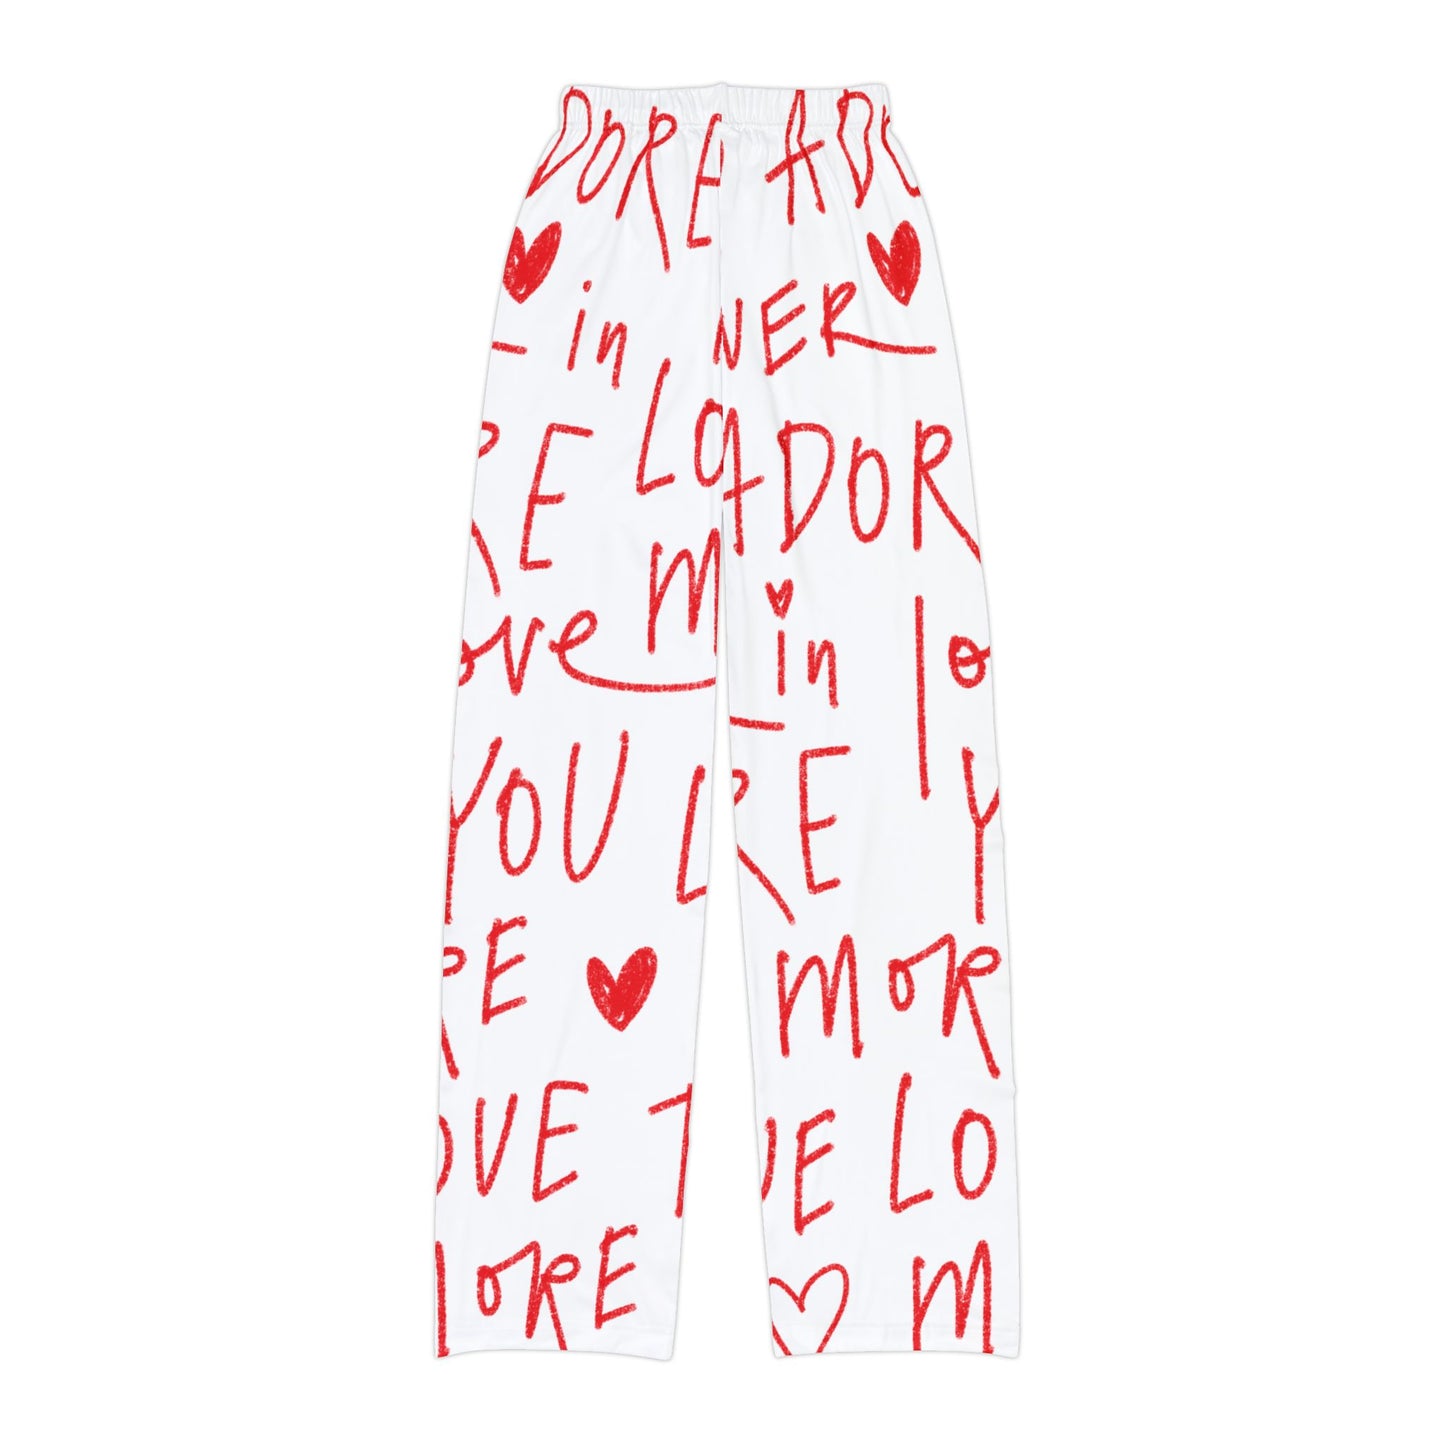 DORE ADO
in NER
RE LO ADOR
ove M in lo
YOU L RE Y
RE MOR
OVE T VE LO
MORE M